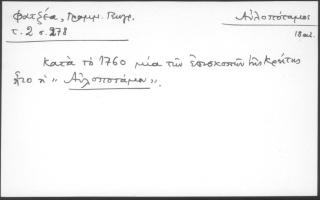 Φατζέα, Γραμμ. Γεωγρ.
τ. 2 σ. 278
Αὐλοπόταμος
18 αἰ.
Κατὰ τὸ 1760 μία τῶν ἐπισκοπῶν τῆς Κρήτης
ἦτο ἡ "Αὐλοποτάμου".